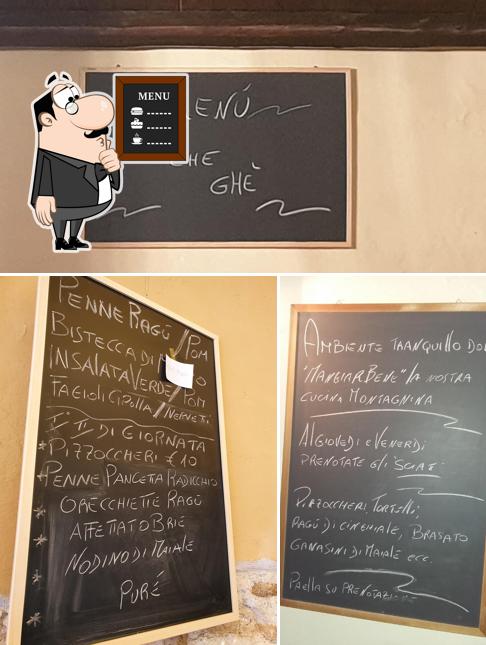 MENU
ENÚ
CHE
GHÈ
PENNE RAGÙ / POM
BISTECCA DI
INSALATA VERDE / POM
FAGIOLI CIPOLLA / NERVETTI
DI GIORNATA
* PIZZOCCHERI € 10
* PENNE PANCETTA RADICCHIO
* ORECCHIETTE RAGÙ
* AFFETTATO BRIE
* NODINO DI MAIALE
* PURÉ
AMBIENTE TRANQUILLO DO
"MANGIAR BENE" LA NOSTRA
CUCINA MONTAGNINA
AL GIOVEDI E VENERDI
PRENOTATE GLI "SCIAT"
PIZZOCCHERI, TORTELLI,
RAGÙ DI CINGHIALE, BRASATO
GANASINI DI MAIALE ECC.
PAELLA SU PRENOTAZIONE